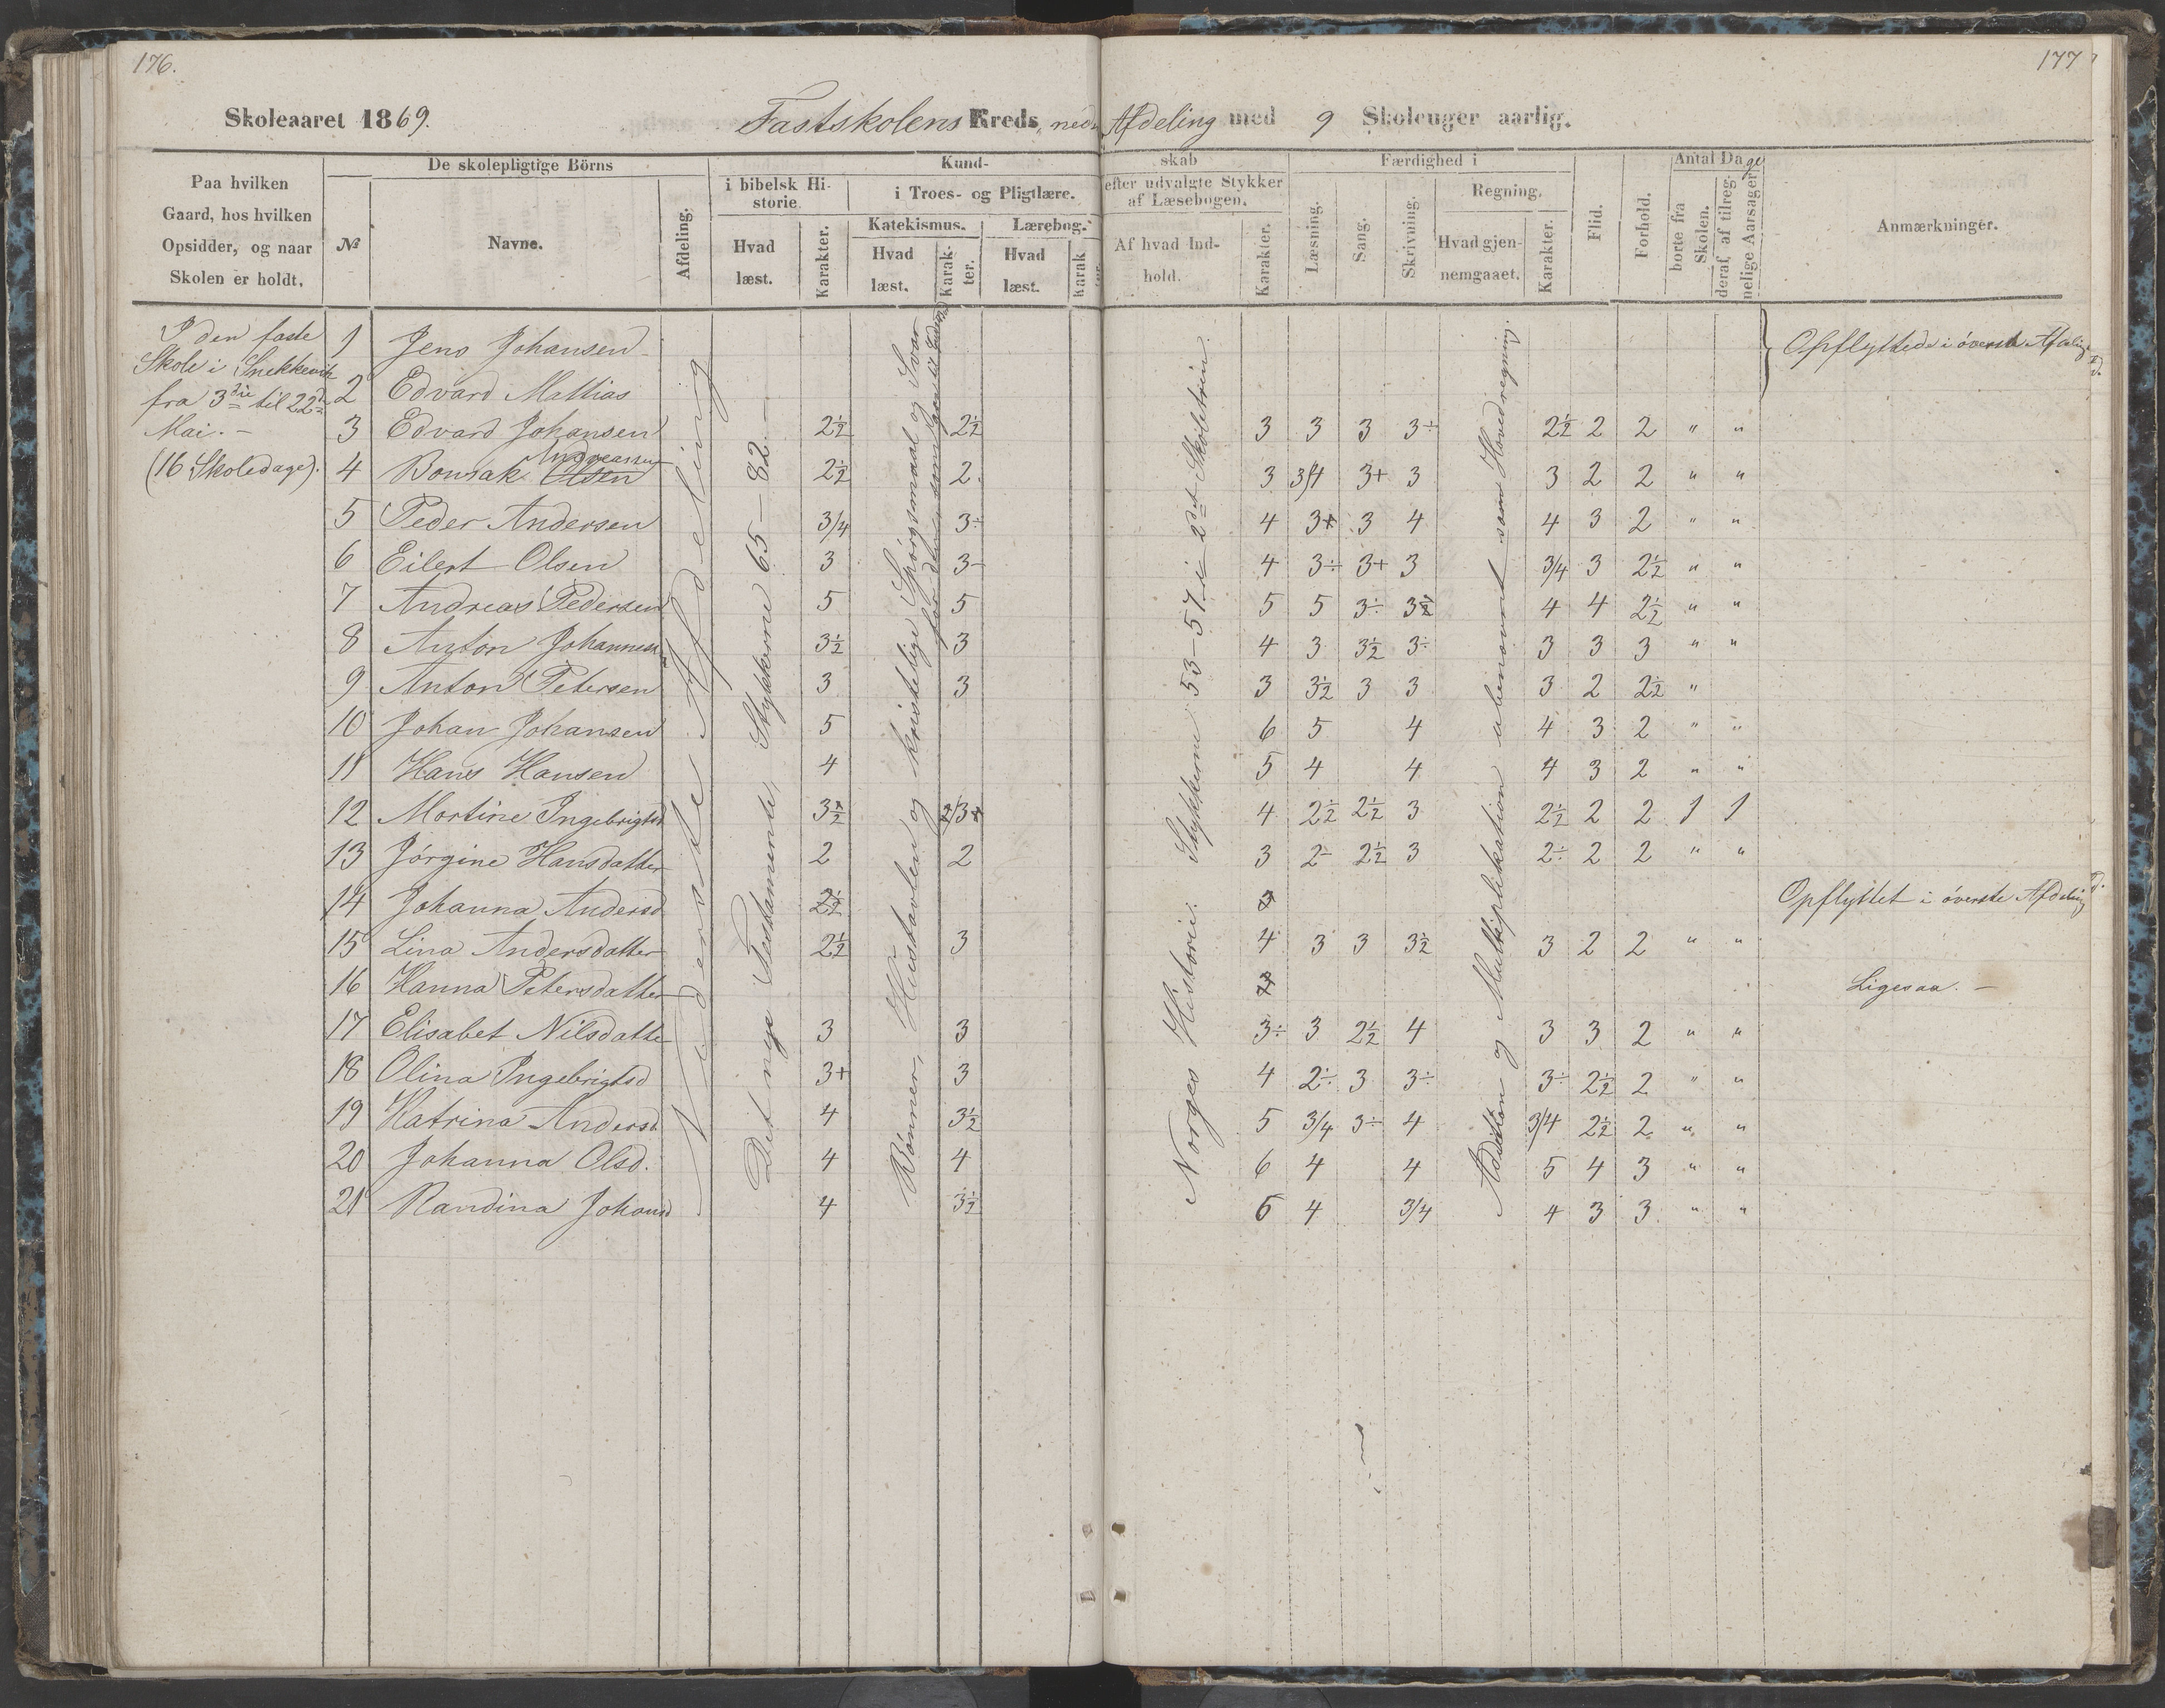 176.
177
Skoleaaret 1869.
Fastskolens Kreds, ned. Afdeling med 9 Skoleuger aarlig.
Paa hvilken Gaard, hos hvilken Opsidder, og naar Skolen er holdt.
De skolepligtige Börns
№ Navne. Afdeling.
Kundskab
i bibelsk Historie. Hvad læst. Karakter.
i Troes- og Pligtlære.
Katekismus. Hvad læst. Karakter.
Lærebog. Hvad læst. Karak
efter udvalgte Stykker af Læsebogen.
Af hvad Indhold. Karakter.
Færdighed i
Læsning. Sang. Skrivning.
Regning. Hvad gjennemgaaet. Karakter.
Flid. Forhold.
Antal Dage
borte fra Skolen. deraf af tilregnelige Aarsager
Anmærkninger.
I den faste
Skole i Snekkevik
fra 3die til 22d
Mai. –
(16 Skoledage).
Nederste Afdeling
Det nye Testamente, Stykkerne 65 – 82. –
Bönner, Hustavlen og kristelige Spörgsmaal og Svar
Norges Historie. Stykkerne 53 – 57 i 2det Skoletrin.
Addition og Multiplikation ubenævnt som Hovedregning.
1 Jens Johansen Opflyttede i överste Afdeling
2 Edvard Mathias
3 Edvard Johansen 2½ 2½ 3 3 3 3÷ 2½ 2 2 " "
4 Bonsak Olsen Andreassen 2½ 2. 3 3/4 3+ 3 3 2 2 " "
5 Peder Andersen 3/4 3÷ 4 3+ 3 4 4 3 2 " "
6 Eilert Olsen 3 3- 4 3÷ 3+ 3 3/4 3 2½ " "
7 Andreas Pedersen 5 5 5 5 3÷ 3½ 4 4 2½ " "
8 Anton Johannesen 3½ 3 4 3 3½ 3÷ 3 3 3 " "
9 Anton Petersen 3 3 3 3½ 3 3 3 2 2½ "
10 Johan Johansen 5 6 5 4 4 3 2 " "
11 Hans Hansen 4 5 4 4 4 3 2 " "
12 Martine Ingebrigtsd 3½ 2/3+ 4 2½ 2½ 3 2½ 2 2 1 1
13 Jörgine Hansdatter 2 2 3 2- 2½ 3 2÷ 2 2 " "
14 Johanna Andersd 2½ 3 Opflyttet i överste Afdeling
15 Lina Andersdatter 2½ 3 4 3 3 3½ 3 2 2 " "
16 Hanna Petersdatter Ligesaa. –
17 Elisabet Nilsdatte 3 3 3÷ 3 2½ 4 3 3 2 " "
18 Olina Ingebrigtsd 3+ 3 4 2÷ 3 3÷ 3÷ 2½ 2 " "
19 Katrina Andersd 4 3½ 5 3/4 3÷ 4 3/4 2½ 2 " "
20 Johanna Olsd. 4 4 6 4 4 5 4 3 " "
21 Randina Johansd 4 3½ 6 4 3/4 4 3 3 " "